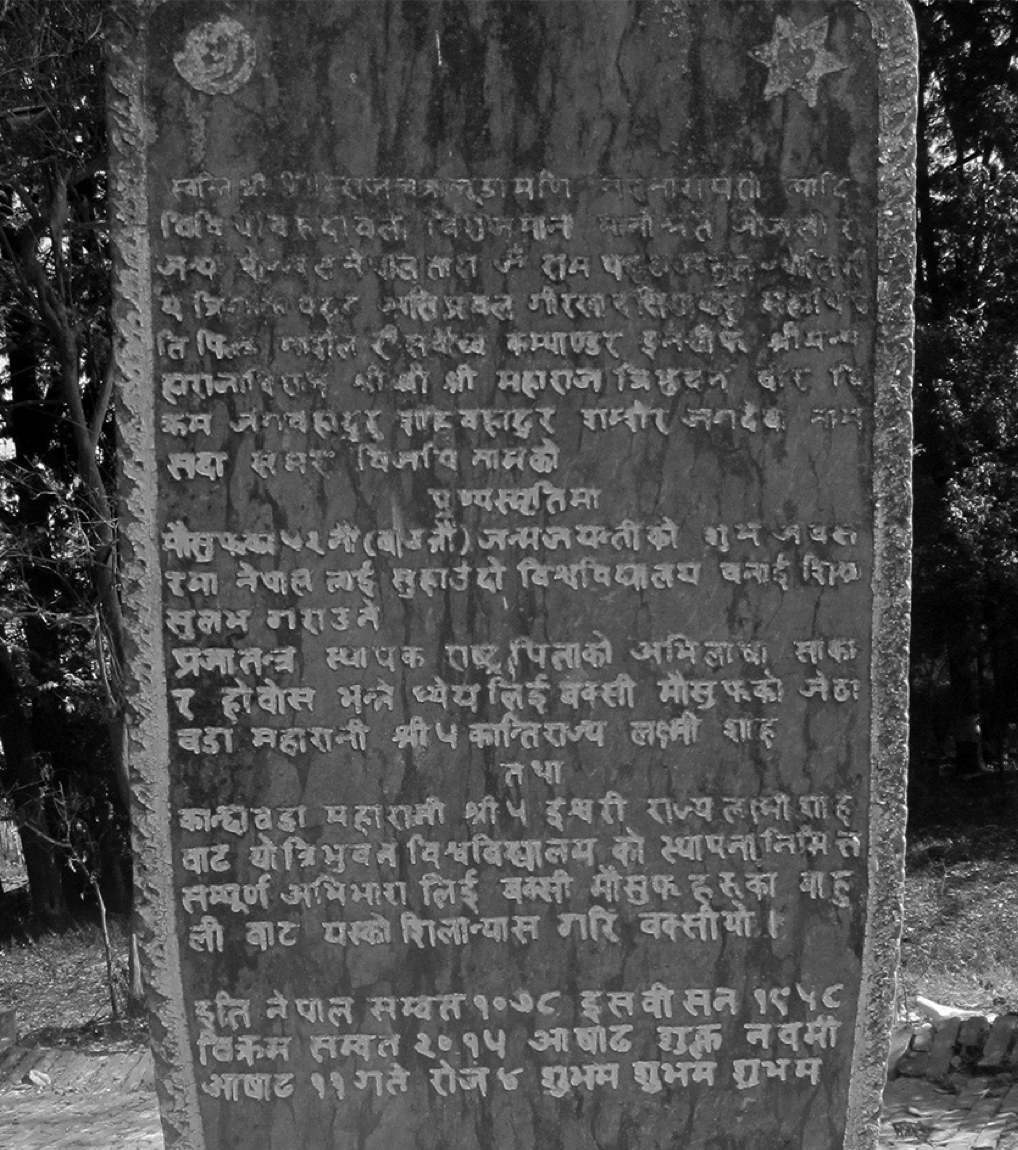 स्वस्तिश्री मणि आदि
विविध विरुदावली विराजमान मानोन्नत ओजस्वी रा
जन्य नेपाल तारा ॐ राम पट्ट
अति प्रवल गोरखा दक्षिणबाहु
ति कम्याण्डर इनचीफ श्रीमन्म
हाराजाधिराज श्री श्री श्री महाराज त्रिभुवन वीर वि
क्रम जंगवहादुर शाहवहादुर शम्शेर जंगदेव नाम
सदा समर विजयि नामको
पुण्यस्मृतिमा
मौसुफका ५२ औं (वाउन्नौं) जन्मजयन्तीको शुभ अवस
रमा नेपाल लाई सुहाउंदो विश्वविद्यालय वनाई शिक्षा
सुलभ गराउने
प्रजातन्त्र स्थापक राष्ट्रपिताको अभिलाषा साका
र होवोस भन्ने ध्येय लिई वक्सी मौसुफको जेठा
वडा महारानी श्री ५ कान्तिराज्य लक्ष्मी शाह
तथा
कान्छावडा महारानी श्री ५ ईश्वरी राज्य लक्ष्मी शाह
वाट यो त्रिभुवन विश्वविद्यालय को स्थापना निमित्त
सम्पूर्ण अभिभारा लिई वक्सी मौसुफ हरूका वाहु
ली वाट यस्को शिलान्यास गरि वक्सीयो ।
इति नेपाल सम्वत १०७८ इसवी सन १९५८
विक्रम सम्वत २०१५ आषाढ शुक्ल नवमी
आषाढ ११ गते रोज ४ शुभम शुभम शुभम